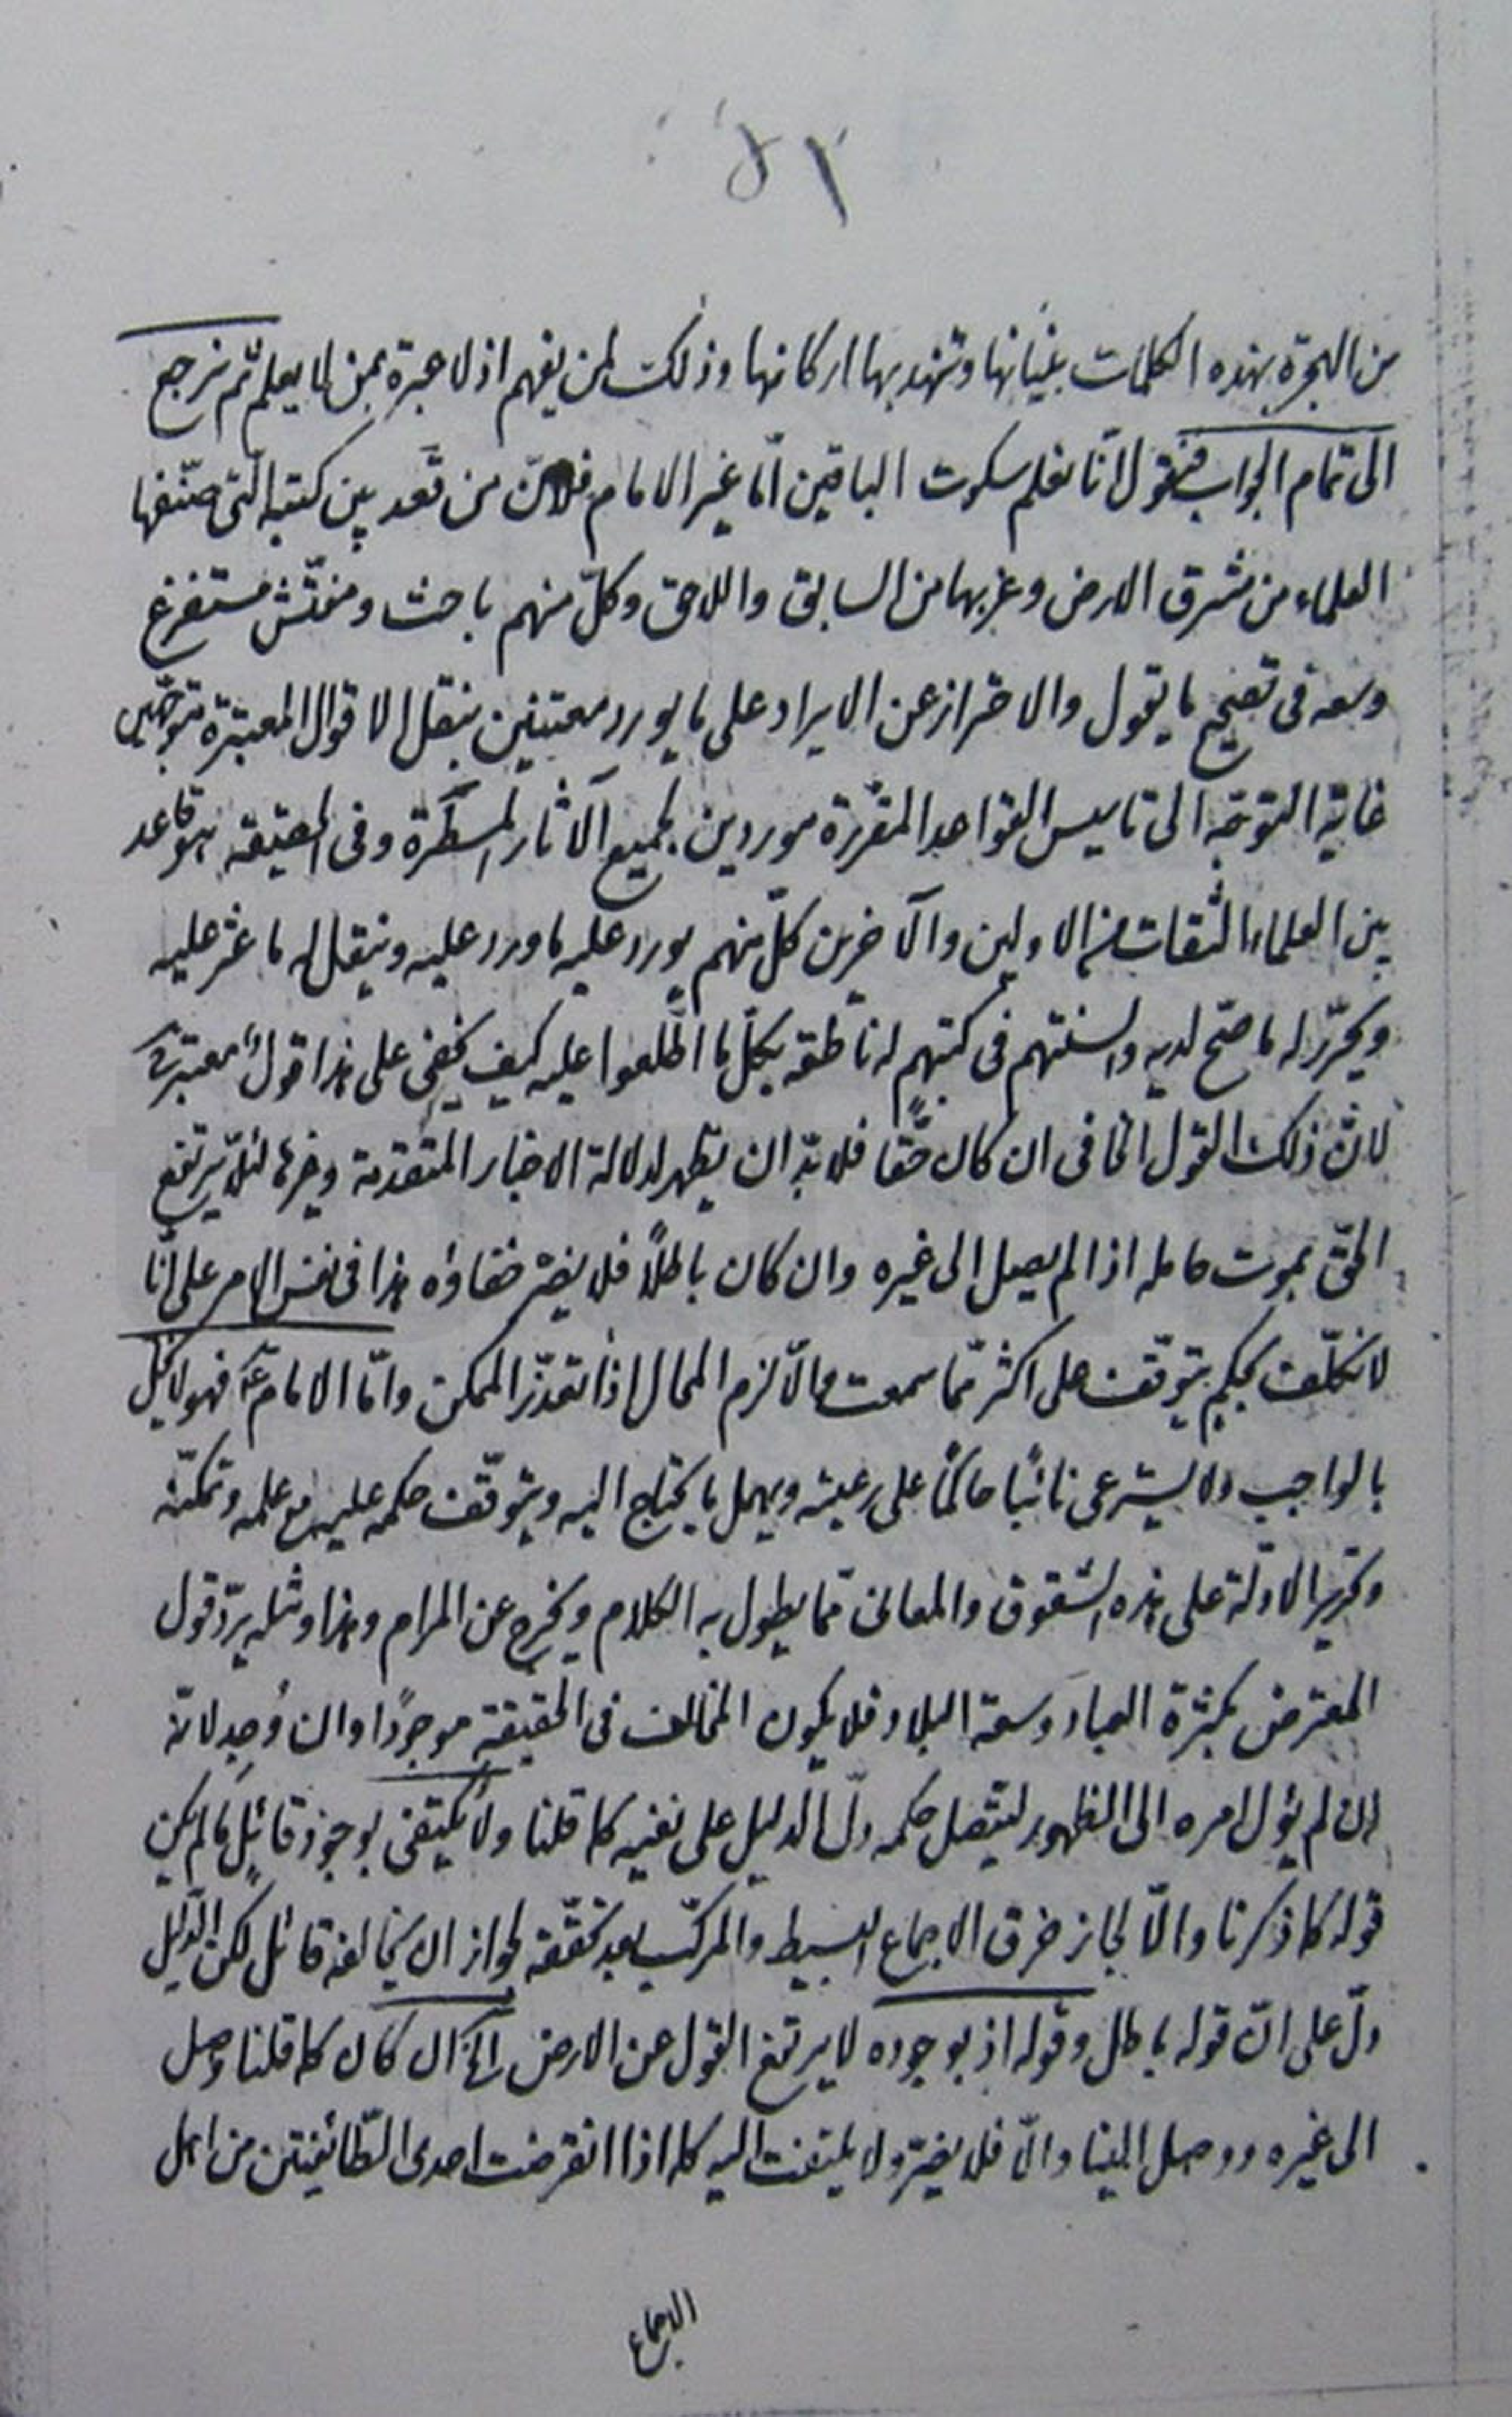 ٥٢
من الهجرة بهذه الكلمات بنيانها وتنهد بها اركانها وذلك لمن يفهم اذ لا عبرة بمن لا يعلم ثم نرجع
الى تمام الجواب فنقول انّا نعلم سكوت الباقين امّا غير الامام فلانّ من تعد بين كتبه الّتى صنّفها
العلماء من مشرق الارض وغربها من السابق واللاحق وكلّ منهم باحث ومفتّش مستفرغ
وسعه فى تصحيح ما يقول والاحتراز عن الايراد على ما يورد معتنين بنقل الاقوال المعتبرة متوجّهين
غاية التوجّه الى تاسيس القواعد المقرّرة موردين لجميع الآثار المسطّرة وفى الحقيقة هو قاعد
بين العلماء الثقات من الاولين والآخرين كلّ منهم يورد عليه ما ورد عليه وينقل له ما عثر عليه
ويحرّر له ما صحّ لديه والسنتهم فى كتبهم له ناطقة بكلّ ما اطّلعوا عليه كيف يخفى على هذا قول معتبر
لانّ ذلك القول الخافى ان كان حقّا فلابدّ ان يظهر لدلالة الاخبار المتقدمة وغيرها لئلّا يرتفع
الحقّ بموت حامله اذا لم يصل الى غيره وان كان باطلاً فلا يضرّ خفاؤه هذا فى نفس الامر على انّا
لا نكلّف بحكم يتوقّف على اكثر ممّا سمعت والّا لزم المحال اذا تعذّر الممكن وامّا الامام ع فهو لا يخلّ
بالواجب ولا يسترعى نائبًا حاكمًا على رعيته ويهمل ما يحتاج اليه ويتوقّف حكمه عليه مع علمه وتمكّنه
وتحرير الادلّة على هذه الشقوق والمعانى ممّا يطول به الكلام ويخرج عن المرام وهذا ومثله يردّ قول
المعترض بكثرة العباد وسعة البلاد فلا يكون المخالف فى الحقيقة موجودًا وان وُجد لانّه
ان لم يؤل امره الى الظهور ليتّصل حكمه دلّ الدليل على نفيه كما قلنا ولا يكتفى بوجود قائل ما لم يكن
قوله كما ذكرنا والّا لجاز خرق الاجماع البسيط والمركّب بعد تحقّقه لجواز ان يخالفه قائل لكن الدّليل
دلّ على انّ قوله باطل وقوله اذ بوجوده لا يرتفع القول عن الارض الخ ان كان كما قلنا وصل
الى غيره ووصل الينا والّا فلا يضرّ ولا يلتفت اليه كله اذا انقرضت احدى الطّائفتين من اهل
الاجماع